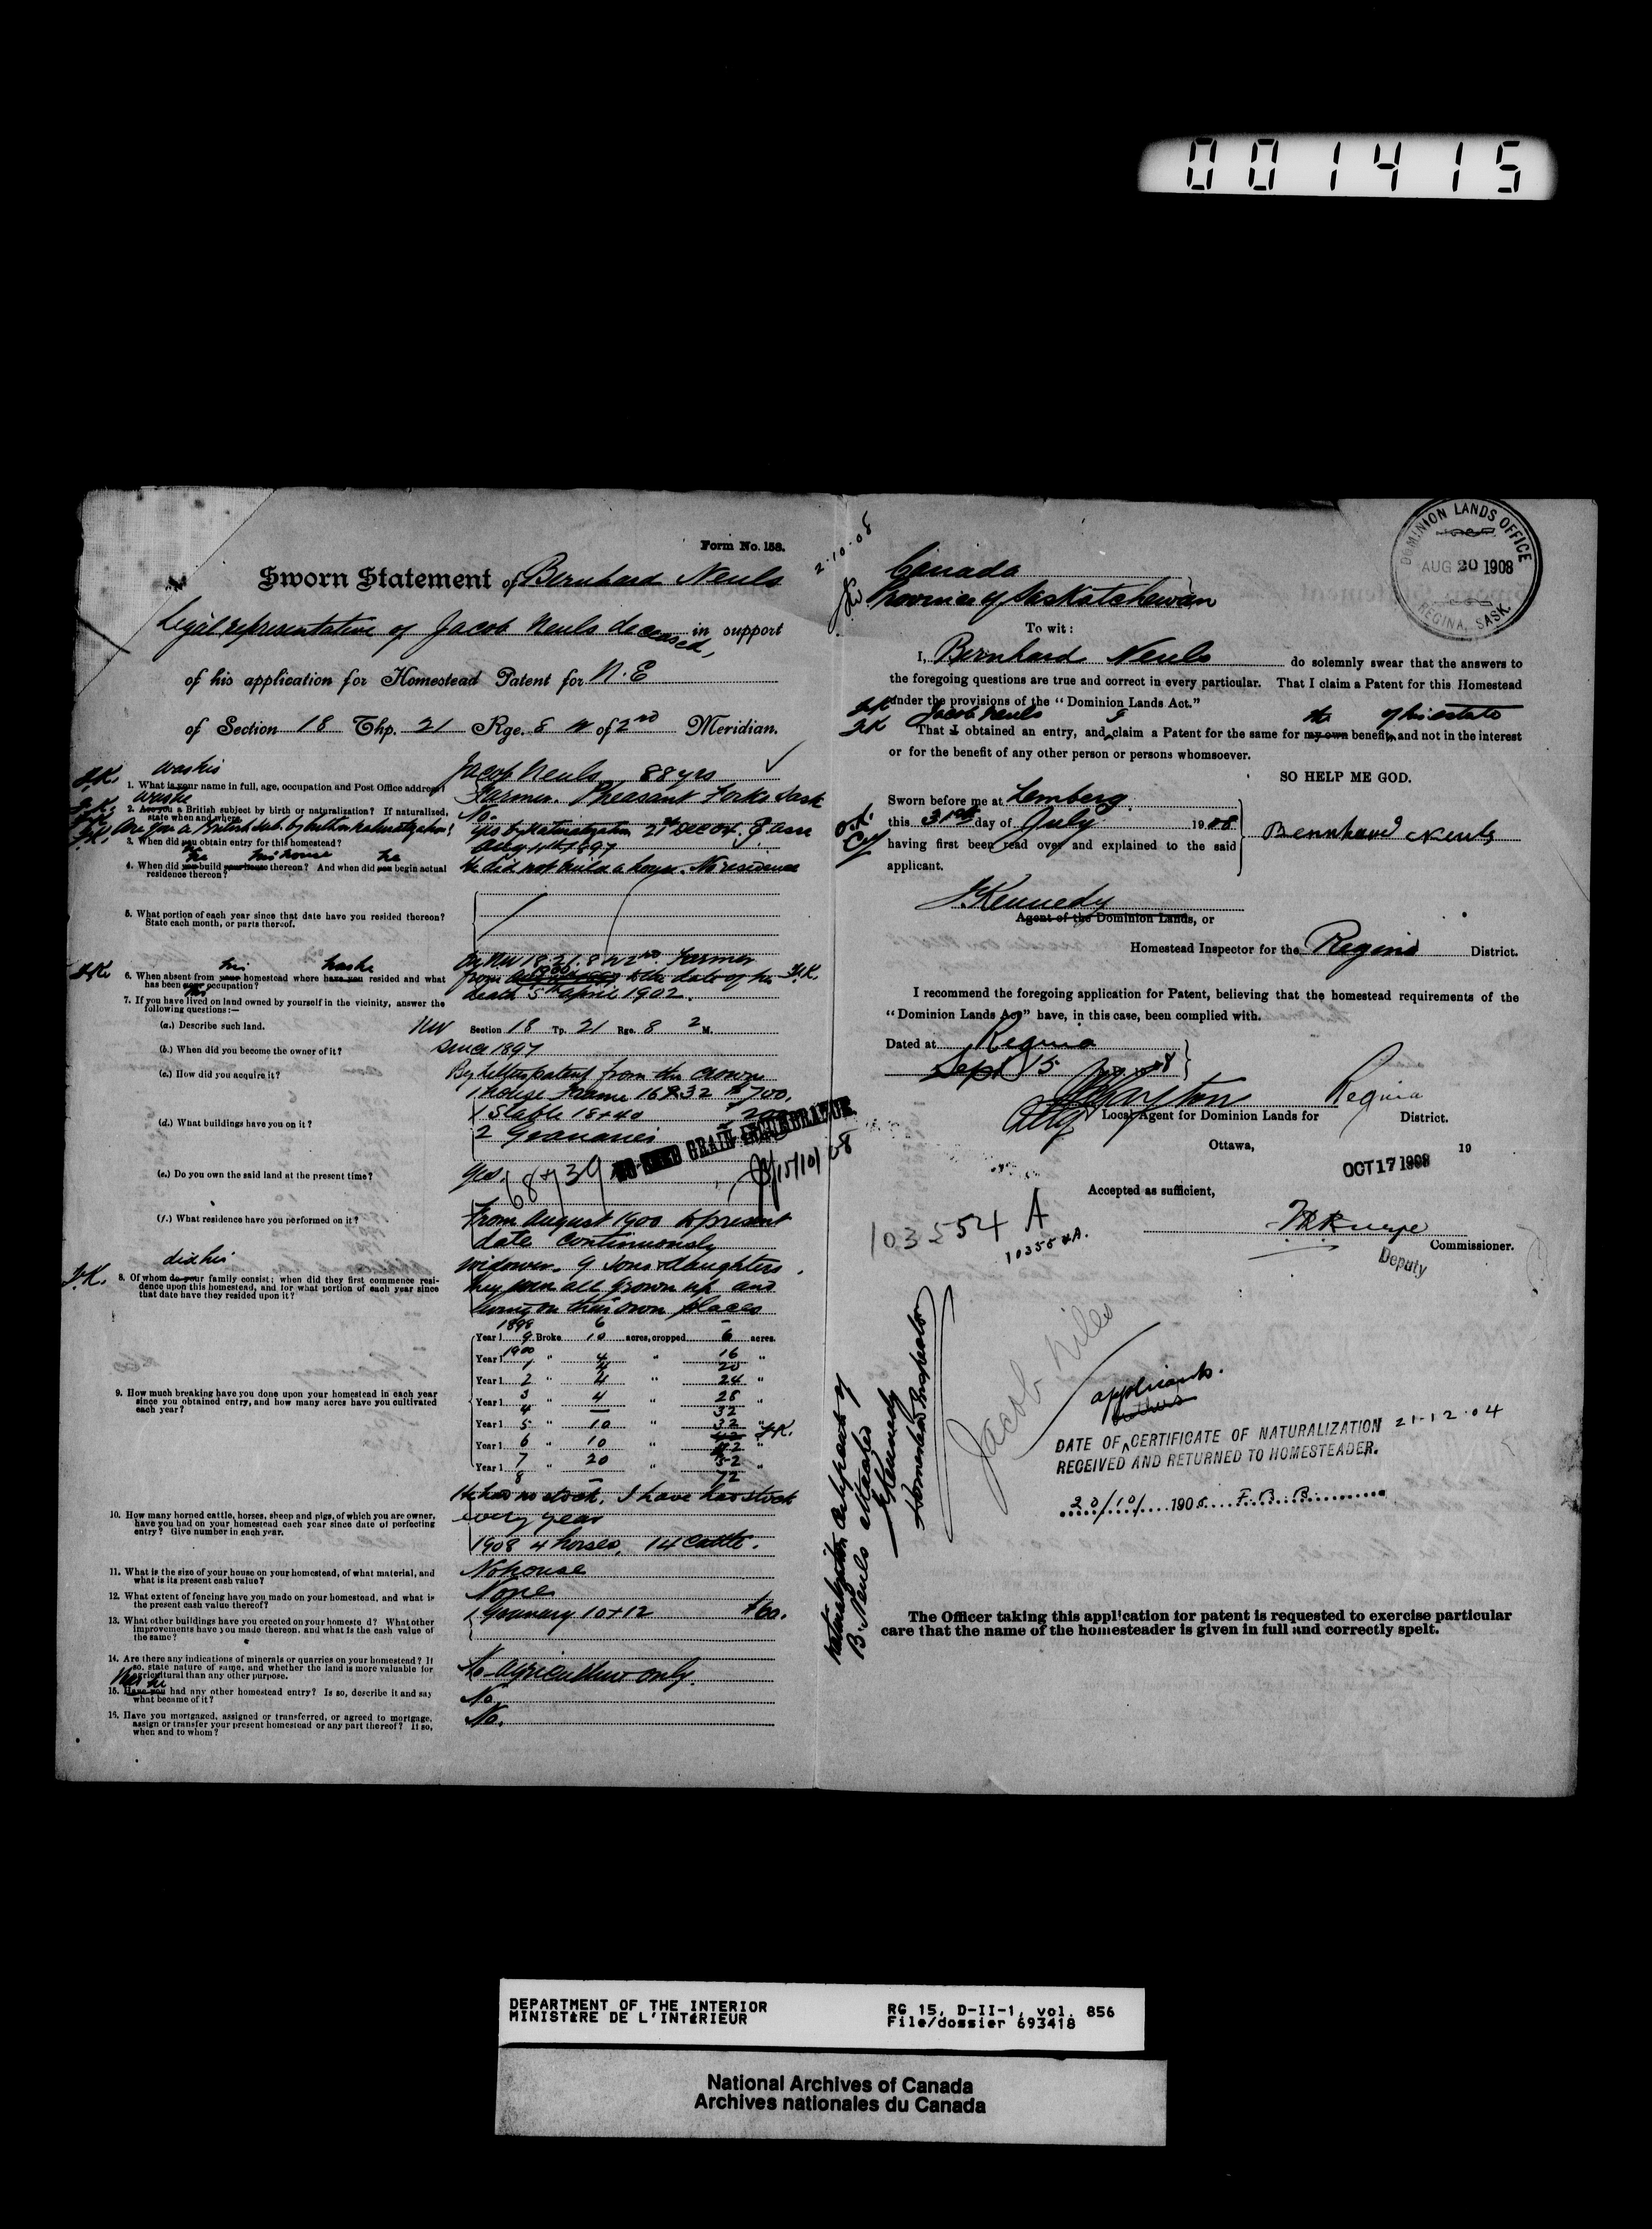 001415
Form No. 158.
Sworn Statement of Bernhard Neuls
Legal representative of Jacob Neuls deceased, in support
of his application for Homestead Patent for N.E
of Section 18 Thp. 21 Rge. 8 W of 2nd Meridian.
J.K. was his
1. What is your name in full, age, occupation and Post Office address?
Jacob Neuls 88 yrs
Farmer. Pheasant Forks Sask
J.K. was he
2. Are you a British subject by birth or naturalization? If naturalized, state when and where.
No.
J.K. Are you a British sub. by birth or naturalization?
yes by Naturalization 21st Dec 04.
3. When did you obtain entry for this homestead?
he
Aug 4th 1897
he his house he
4. When did you build your house thereon? And when did you begin actual
residence thereon?
He did not build a house. No residence
5. What portion of each year since that date have you resided thereon?
State each month, or parts thereof.
J.K. his has he
6. When absent from your homestead where have you resided and what
has been your occupation?
his
On NW 18.21.8 W 2nd. Farmer
from 1900 to the date of his J.K.
death 5th April 1902.
7. If you have lived on land owned by yourself in the vicinity, answer the
following questions:—
(a.) Describe such land. NW Section 18 Tp. 21 Rge. 8 2 M.
(b.) When did you become the owner of it? Since 1897
(c.) How did you acquire it? By letters patent from the crown
(d.) What buildings have you on it?
1 house Frame 16x32 $700.
1 Stable 18x40
2 Granaries
(e.) Do you own the said land at the present time? yes.
68739
15/10/08
(f.) What residence have you performed on it?
From August 1900 to present
date continuously
J.K. did his
8. Of whom do your family consist; when did they first commence resi-
dence upon this homestead, and for what portion of each year since
that date have they resided upon it?
widower. 9 sons & daughters.
they were all grown up and
living on their own places
9. How much breaking have you done upon your homestead in each year
since you obtained entry, and how many acres have you cultivated
each year?
1898 6 –
Year 1 9 Broke 10 acres, cropped 6 acres.
Year 1 1900 " 4 " 16 "
1 4 20
Year 1 2 " 4 " 24 "
3 4 28
Year 1 4 " — " 32 "
Year 1 5 " 10 " 32 " J.K.
Year 1 6 " 10 " 42 "
Year 1 7 " 20 " 52 "
8 – 72
10. How many horned cattle, horses, sheep and pigs, of which you are owner,
have you had on your homestead each year since date of perfecting
entry? Give number in each year.
He had no stock. I have had stock
every year
1908 4 horses, 14 Cattle.
11. What is the size of your house on your homestead, of what material, and
what is its present cash value?
No house
12. What extent of fencing have you made on your homestead, and what is
the present cash value thereof?
None
13. What other buildings have you erected on your homestead? What other
improvements have you made thereon, and what is the cash value of
the same?
1 Granary 10x12 $60.
14. Are there any indications of minerals or quarries on your homestead? If
so, state nature of same, and whether the land is more valuable for
agricultural than any other purpose.
No agriculture only.
Has he
15. Have you had any other homestead entry? Is so, describe it and say
what became of it?
No.
16. Have you mortgaged, assigned or transferred, or agreed to mortgage,
assign or transfer your present homestead or any part thereof? If so,
when and to whom?
No.
2.10.08
Canada
Province of Saskatchewan
To wit:
DOMINION LANDS OFFICE
AUG 20 1908
REGINA, SASK.
I, Bernhard Neuls do solemnly swear that the answers to
the foregoing questions are true and correct in every particular. That I claim a Patent for this Homestead
under the provisions of the "Dominion Lands Act."
J.K. Jacob Neuls I the of his estate
J.K. That I obtained an entry, and claim a Patent for the same for my own benefit, and not in the interest
or for the benefit of any other person or persons whomsoever.
SO HELP ME GOD.
Sworn before me at Lemberg
this 31st day of July 1908
having first been read over and explained to the said
applicant.
Bernhard Neuls
J. Kennedy
Agent of the Dominion Lands, or
Homestead Inspector for the Regina District.
I recommend the foregoing application for Patent, believing that the homestead requirements of the
"Dominion Lands Act" have, in this case, been complied with.
Dated at Regina
Sept 15 1908
Regina
Local Agent for Dominion Lands for District.
Ottawa, 19
OCT 17 1908
Accepted as sufficient,
Commissioner.
Deputy
103554 A
103554A.
Naturalization certificate of
B. Neuls attached
J Kennedy
Homestead Inspector
applicants.
DATE OF CERTIFICATE OF NATURALIZATION 21-12-04
RECEIVED AND RETURNED TO HOMESTEADER.
20/10/ 1908 F. B. B.
The Officer taking this application for patent is requested to exercise particular
care that the name of the homesteader is given in full and correctly spelt.
DEPARTMENT OF THE INTERIOR
MINISTÈRE DE L'INTÉRIEUR
RG 15, D-II-1, vol. 856
File/dossier 693418
National Archives of Canada
Archives nationales du Canada